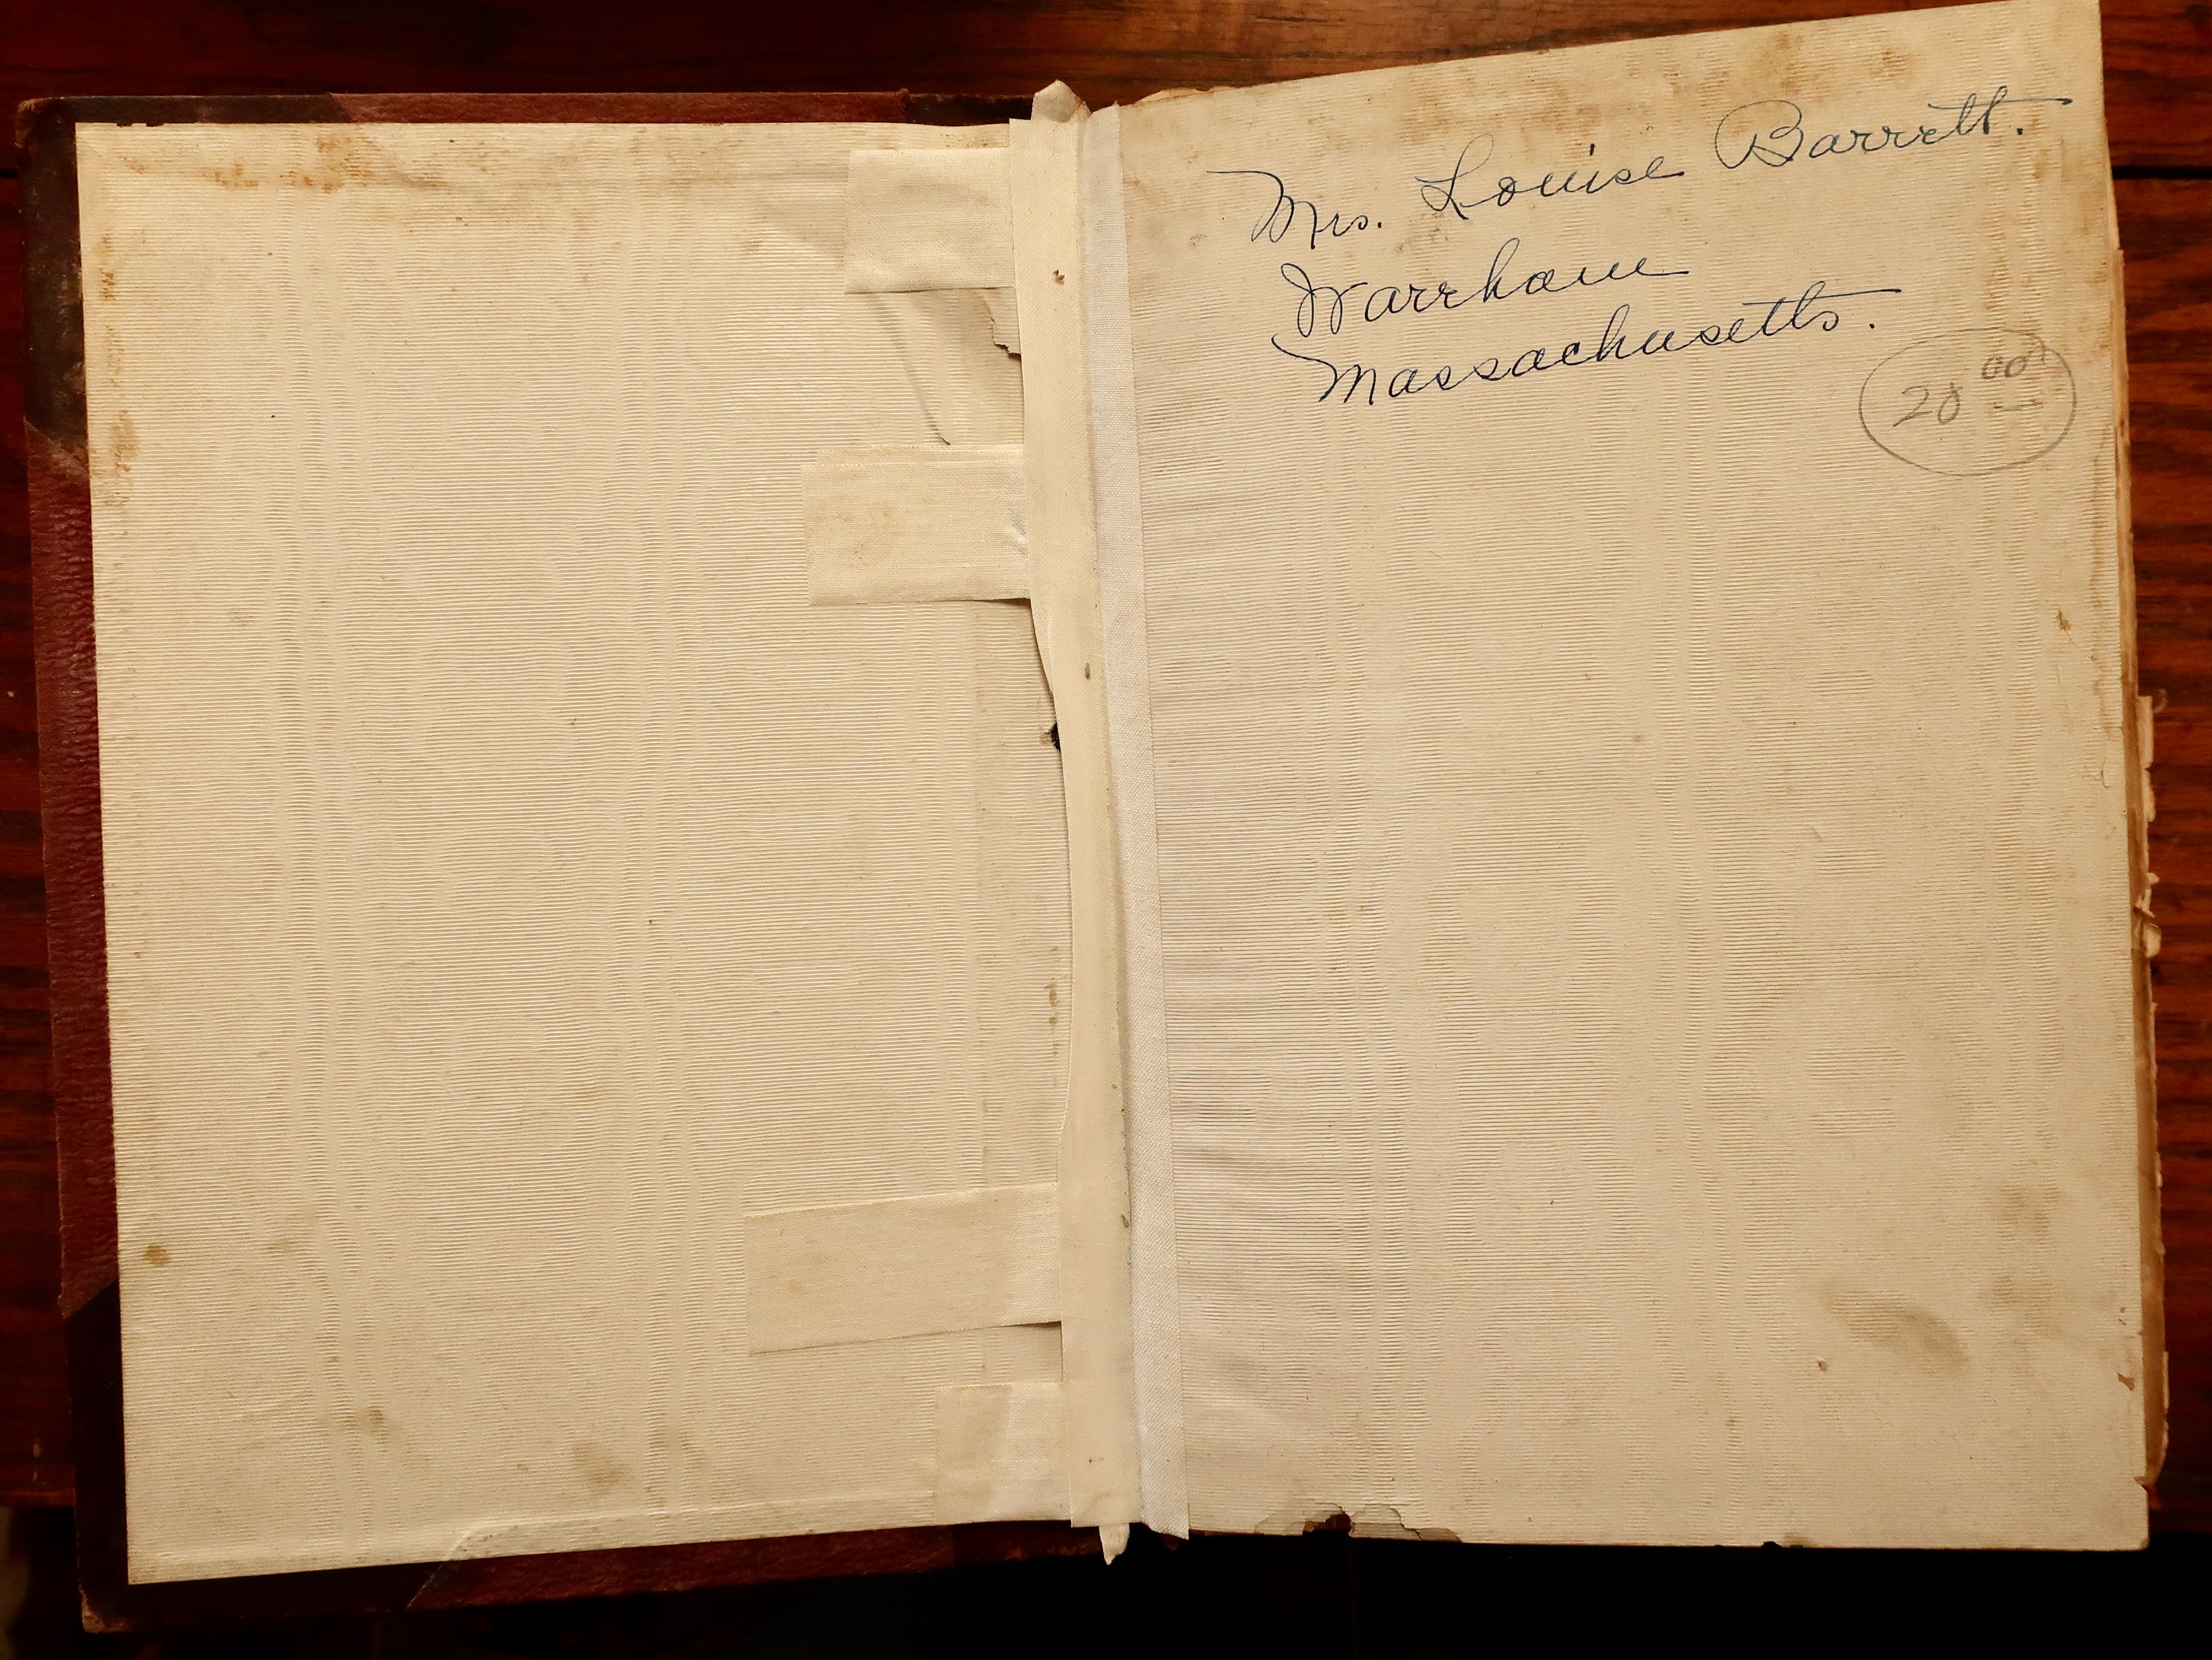 Mrs. Louise Barrett.
Wareham
Massachusetts.
20 00